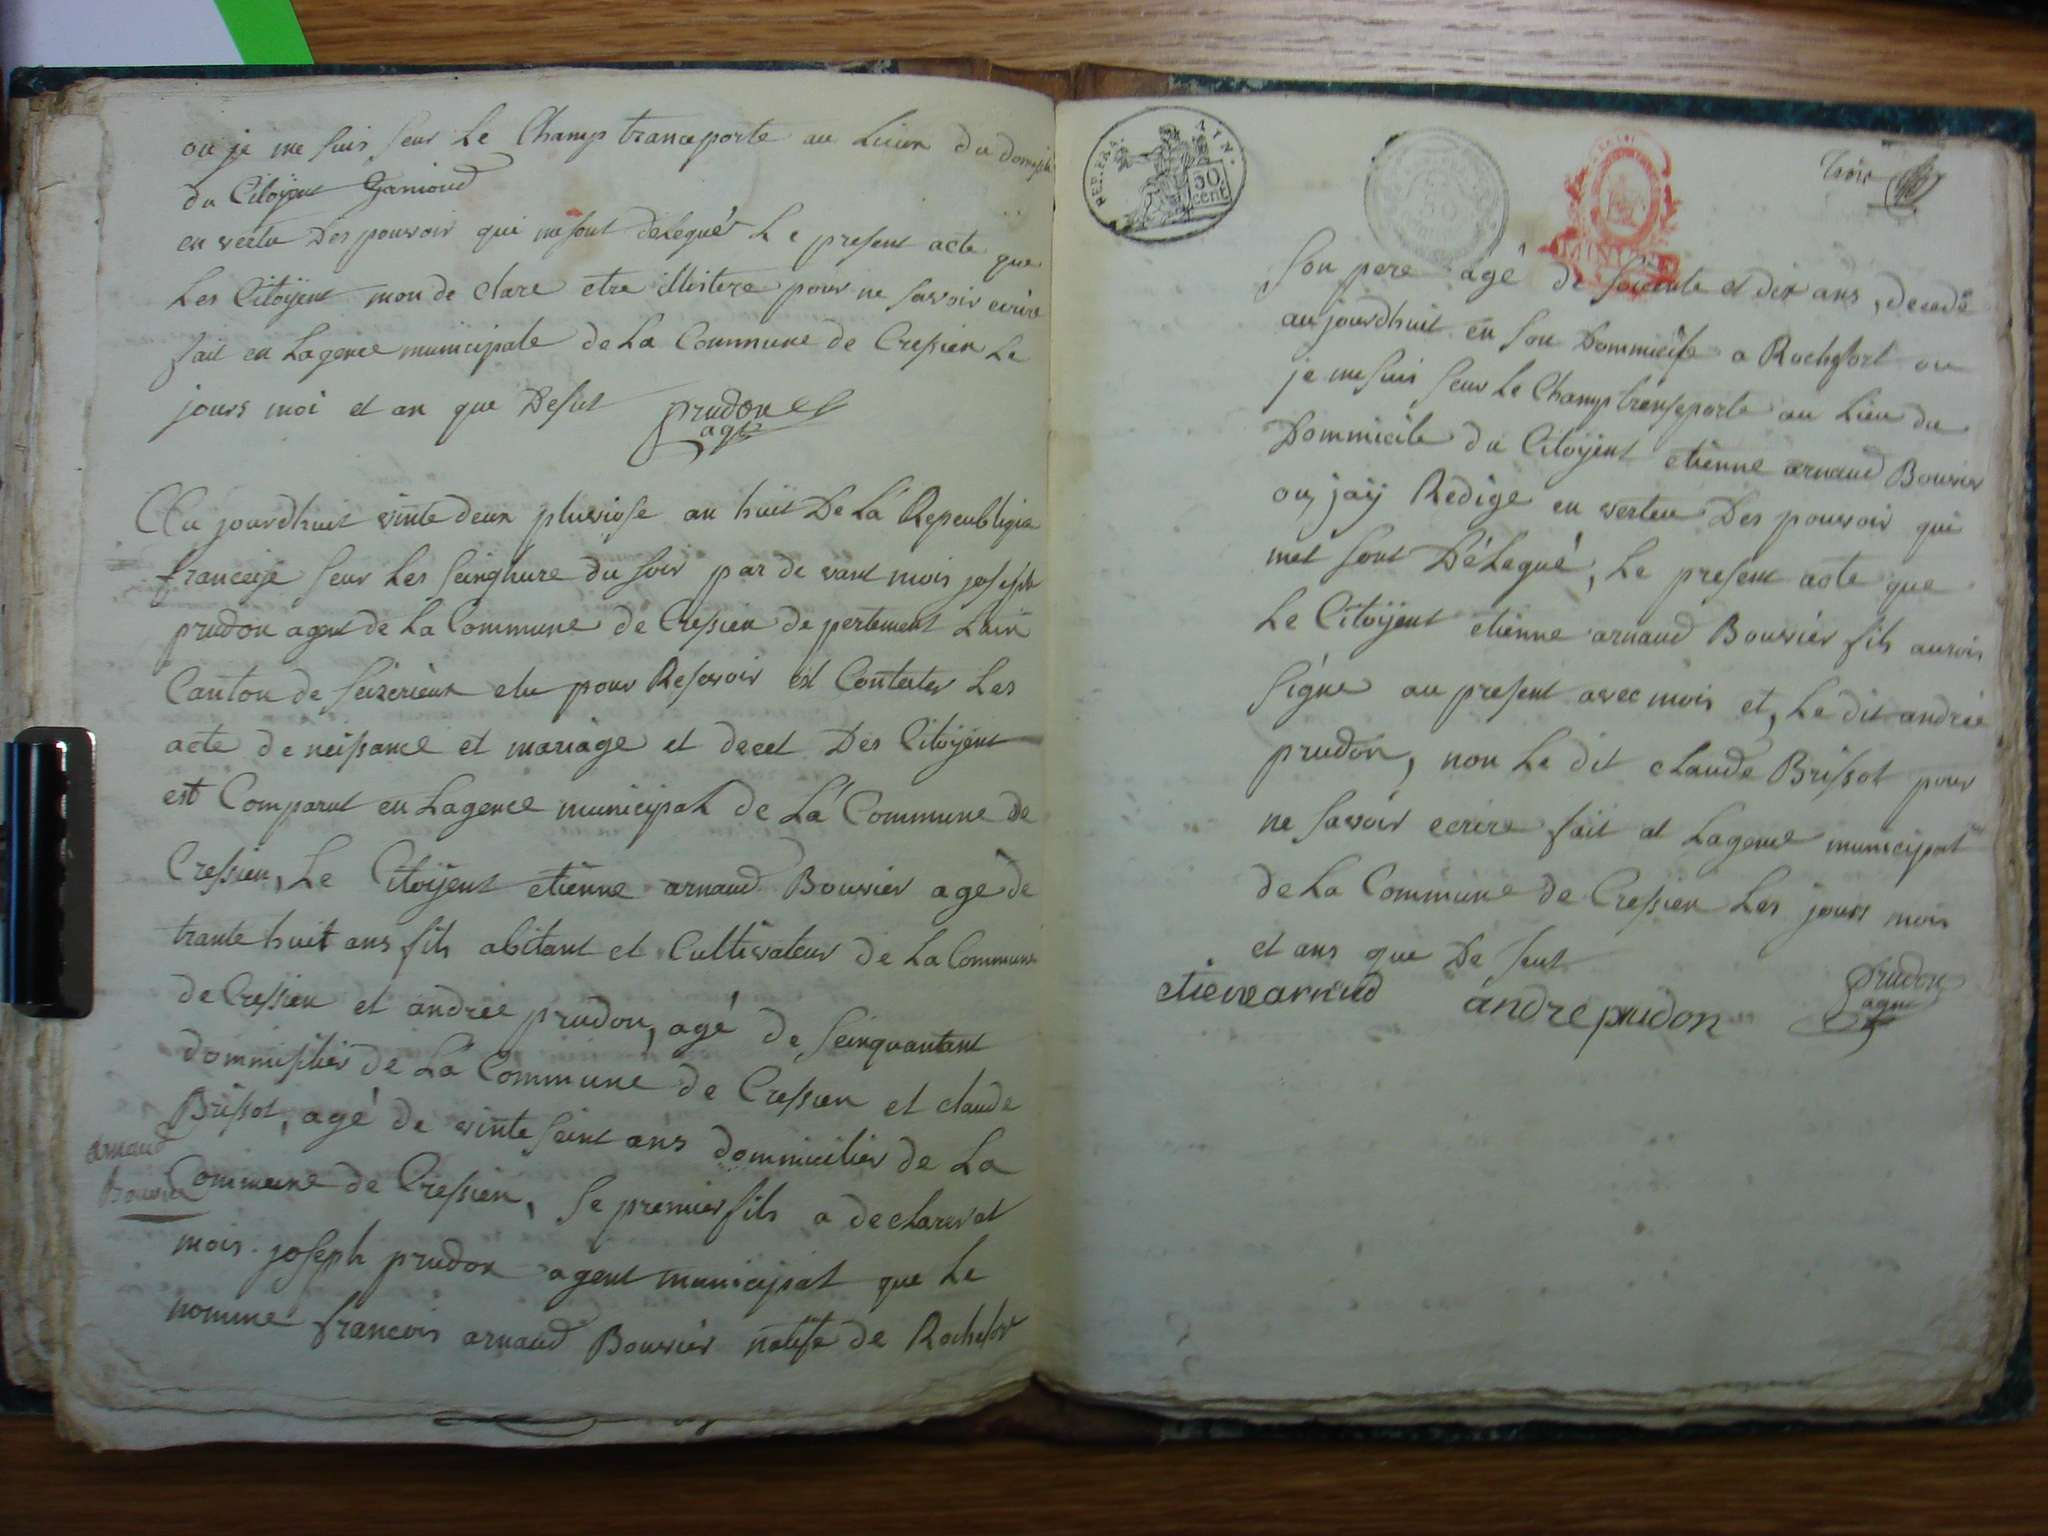 ou je me suis seur Le Champ transporte au Lieu du domicile
du Citoyent Ganioud
en vertu Des pouvoir qui me sont deLegué Le present acte que
Les Citoyent mon de clare etre illistere pour ne savoir ecrire
fait en Lagence municipale de La Commune de Cressien Le
jours moi et an que Desut prudon
agt
Au jourdhuit vinte deux pluviose an huit De La Repeubligue
franceise seur Les seinghure du soir par de vant mois joseph
prudon agent de La Commune de Cressien de pertement Lain
Canton de seizerieux elu pour Resevoir et Contater Les
acte de neissance et mariage et decet Des Citoyent
est Comparut en Lagence municipal de La Commune de
Cressien, Le Citoyent etienne arnaud Bouvier age de
trante huit ans fils abitant et Cultivateur de La Commune
de Cressien et andrée prudon, agé de seinquantent
dommisilier de La Commune de Cressien et claude
Brissot, agé de vinte seint ans dommicilier de La
arnaud
Bouvier
Commune de Cressien, se premier fils a declarer at
mois joseph prudon agent municipat que Le
nommé francois arnaud Bouvier natife de Rochefor
REP. FRA. AYN.
50
cent
MINUTE
Trois
son pere agé de soixente et dix ans, decedé
aujourdhuit en son Dommicile a Rochefort ou
je me suis seur Le Champ transeporte au Lieu du
Dommicile du Citoyent etienne arnaud Bouvier
ou, jaÿ Redige en verteu Des pouvoir qui
met sont DéLegué, Le present acte que
Le Citoyent etienne arnaud Bouvier fils aurois
signe au present avec mois et, Le dit andrée
prudon, non Le dit claude Brissot pour
ne savoir ecrire fait at Lagence municipat
de La Commune de Cressien Les jours mois
et ans que De seut
etieneArnaud andre prudon prudon
agent